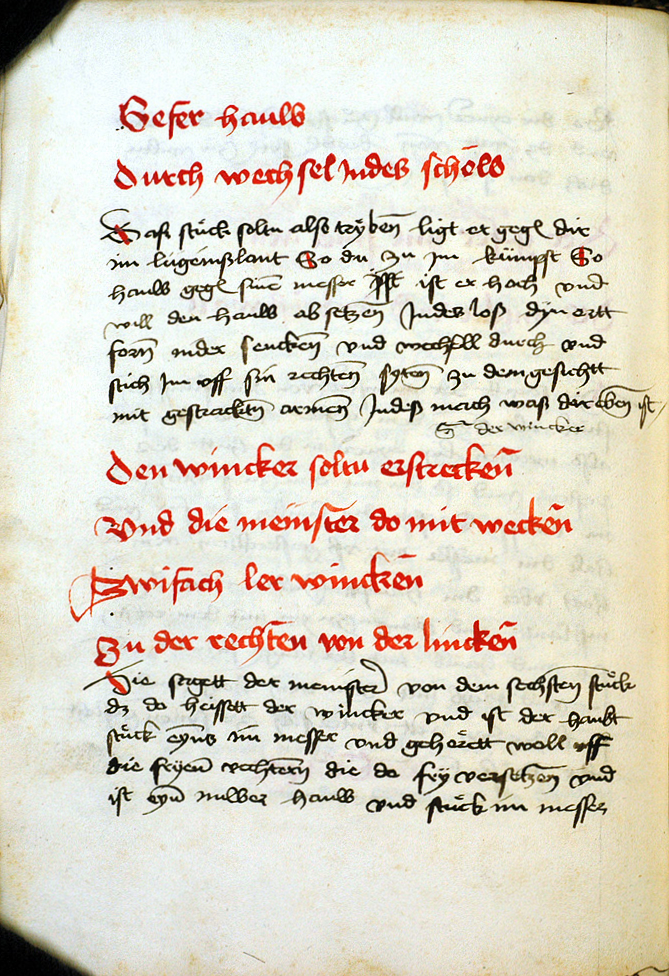 Gefer hauw
Durch wechsel Indes schöws
Das stück soltu also tryben ligt er gege dir
im lugeinslant So du zu im kümpst So
hauw gege sine messer ist er hoch und
will den hauw ab setzen Indes loß dyn ortt
forn nider sencken vnd wechsell durch vnd
stich Im vff sin rechten syten zu dem gesichtt
mit gestrackten armen Indeß mach waß dir eben ist
der wincker
Den wincker soltu erstrecken
Vnd die meinster do mit wecken
Zwifach ler wincken
Zu der rechten von der lincken
Hie sagett der meinster von dem sechsten stück
dz do heissett der wincker vnd ist der haubt
stück eyns im messer vnd gehörett woll vff
die fryen vechtern die do fry versetzen vnd
ist eyn nuwer hauw vnd stück im messer